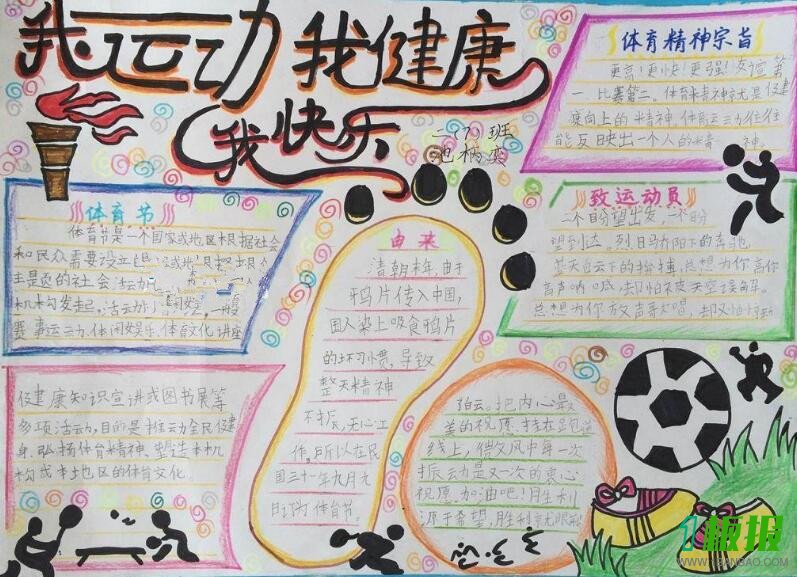 我运动 我健康
我快乐
二(7)班
体育精神宗旨
更高!更快!更强!友谊第
一,比赛第二。体育精神就是健康
向上的精神,体育运动往往
能反映出一个人的精 神。
体育节
体育节是一个国家或地区根据社会
和民众需要设立
主题的社会活动
机构发起,活动
赛事运动,休闲娱乐,体育文化讲座
促健康知识宣讲或图书展等
多项活动,目的是推动全民健
身,弘扬体育精神、塑造本机
构或本地区的体育文化。
由来
清朝末年,由于
鸦片传入中国,
国人染上吸食鸦片
的坏习惯,导致
整天精神
不振,无心工
作。所以在民
国三十年九月九
日订为体育节。
致运动员
一个盼望出发,一个盼
望到达。烈日骄阳下的奔驰,
蓝天白云下的 总想为你高
声呐喊,却只怕
总想为你放声歌唱,却又怕
白云。把内心最
美的祝愿,挂在跑道
线上,借文风中每一次
振动是又一次的衷心
祝愿。加油吧!胜利
源于希望,胜利
1板报
WWW.1BANBAO.COM